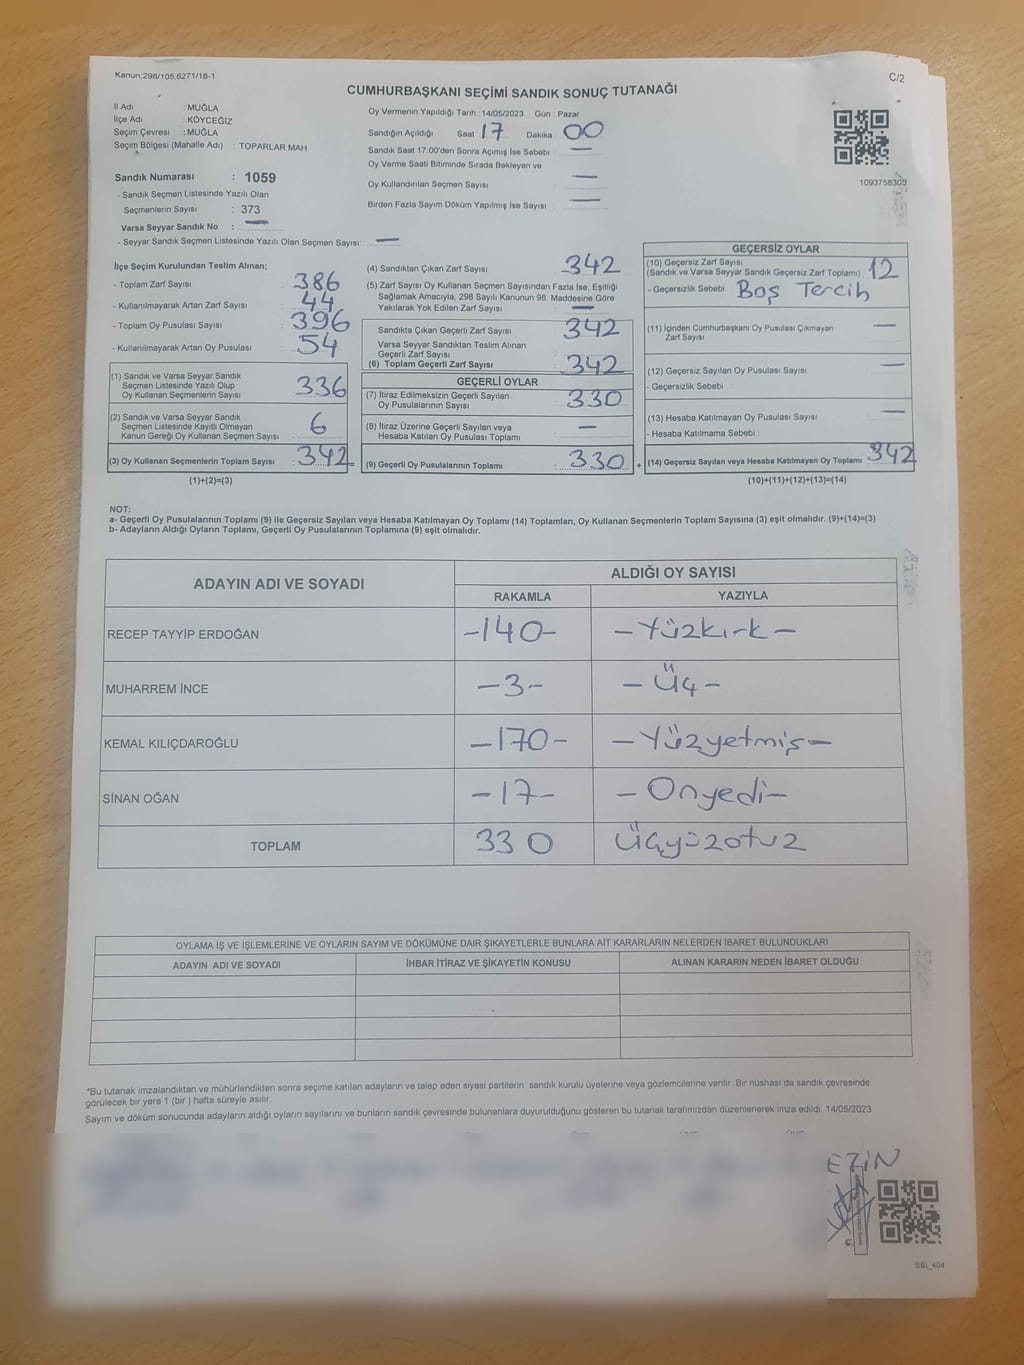 Kanun;298/105;6271/18-1
C/2
CUMHURBAŞKANI SEÇİMİ SANDIK SONUÇ TUTANAĞI
İl Adı : MUĞLA
İlçe Adı : KÖYCEĞİZ
Seçim Çevresi : MUĞLA
Seçim Bölgesi (Mahalle Adı) : TOPARLAR MAH
Oy Vermenin Yapıldığı Tarih :14/05/2023 Gün : Pazar
Sandığın Açıldığı Saat 17 Dakika 00
Sandık Saat 17:00'den Sonra Açımış İse Sebebi : —
Oy Verme Saati Bitiminde Sırada Bekleyen ve
Oy Kullandırılan Seçmen Sayısı : —
Birden Fazla Sayım Döküm Yapılmış İse Sayısı : —
1093758305
Sandık Numarası : 1059
- Sandık Seçmen Listesinde Yazılı Olan
Seçmenlerin Sayısı : 373
Varsa Seyyar Sandık No : —
- Seyyar Sandık Seçmen Listesinde Yazılı Olan Seçmen Sayısı: —
İlçe Seçim Kurulundan Teslim Alınan;
- Toplam Zarf Sayısı : 386
- Kullanılmayarak Artan Zarf Sayısı : 44
- Toplam Oy Pusulası Sayısı : 396
- Kullanılmayarak Artan Oy Pusulası : 54
(1) Sandık ve Varsa Seyyar Sandık
Seçmen Listesinde Yazılı Olup
Oy Kullanan Seçmenlerin Sayısı : 336
(2) Sandık ve Varsa Seyyar Sandık
Seçmen Listesinde Kayıtlı Olmayan
Kanun Gereği Oy Kullanan Seçmen Sayısı : 6
(3) Oy Kullanan Seçmenlerin Toplam Sayısı : 342 =
(1)+(2)=(3)
(4) Sandıktan Çıkan Zarf Sayısı : 342
(5) Zarf Sayısı Oy Kullanan Seçmen Sayısından Fazla İse, Eşitliği
Sağlamak Amacıyla, 298 Sayılı Kanunun 98. Maddesine Göre
Yakılarak Yok Edilen Zarf Sayısı : —
Sandıkta Çıkan Geçerli Zarf Sayısı : 342
Varsa Seyyar Sandıktan Teslim Alınan
Geçerli Zarf Sayısı
(6) Toplam Geçerli Zarf Sayısı : 342
GEÇERLİ OYLAR
(7) İtiraz Edilmeksizin Geçerli Sayılan
Oy Pusulalarının Sayısı : 330
(8) İtiraz Üzerine Geçerli Sayılan veya
Hesaba Katılan Oy Pusulası Toplamı : —
(9) Geçerli Oy Pusulalarının Toplamı : 330 +
GEÇERSİZ OYLAR
(10) Geçersiz Zarf Sayısı
(Sandık ve Varsa Seyyar Sandık Geçersiz Zarf Toplamı) : 12
- Geçersizlik Sebebi : Boş Tercih
(11) İçinden Cumhurbaşkanı Oy Pusulası Çıkmayan
Zarf Sayısı : —
(12) Geçersiz Sayılan Oy Pusulası Sayısı : —
- Geçersizlik Sebebi :
(13) Hesaba Katılmayan Oy Pusulası Sayısı : —
- Hesaba Katılmama Sebebi :
(14) Geçersiz Sayılan veya Hesaba Katılmayan Oy Toplamı : 342
(10)+(11)+(12)+(13)=(14)
NOT:
a- Geçerli Oy Pusulalarının Toplamı (9) ile Geçersiz Sayılan veya Hesaba Katılmayan Oy Toplamı (14) Toplamları, Oy Kullanan Seçmenlerin Toplam Sayısına (3) eşit olmalıdır. (9)+(14)=(3)
b- Adayların Aldığı Oyların Toplamı, Geçerli Oy Pusulalarının Toplamına (9) eşit olmalıdır.
ADAYIN ADI VE SOYADI
ALDIĞI OY SAYISI
RAKAMLA YAZIYLA
RECEP TAYYİP ERDOĞAN -140- -Yüzkırk-
MUHARREM İNCE -3- -Üç-
KEMAL KILIÇDAROĞLU -170- -Yüzyetmiş-
SİNAN OĞAN -17- -Onyedi-
TOPLAM 330 Üçyüzotuz
OYLAMA İŞ VE İŞLEMLERİNE VE OYLARIN SAYIM VE DÖKÜMÜNE DAİR ŞİKAYETLERLE BUNLARA AİT KARARLARIN NELERDEN İBARET BULUNDUKLARI
ADAYIN ADI VE SOYADI İHBAR İTİRAZ VE ŞİKAYETİN KONUSU ALINAN KARARIN NEDEN İBARET OLDUĞU
*Bu tutanak imzalandıktan ve mühürlendikten sonra seçime katılan adayların ve talep eden siyasi partilerin sandık kurulu üyelerine veya gözlemcilerine verilir. Bir nüshası da sandık çevresinde
görülecek bir yere 1 (bir) hafta süreyle asılır.
Sayım ve döküm sonucunda adayların aldığı oyların sayılarını ve bunların sandık çevresinde bulunanlara duyurulduğunu gösteren bu tutanak tarafımızdan düzenlenerek imza edildi. 14/05/2023
EZİN
SSI_404